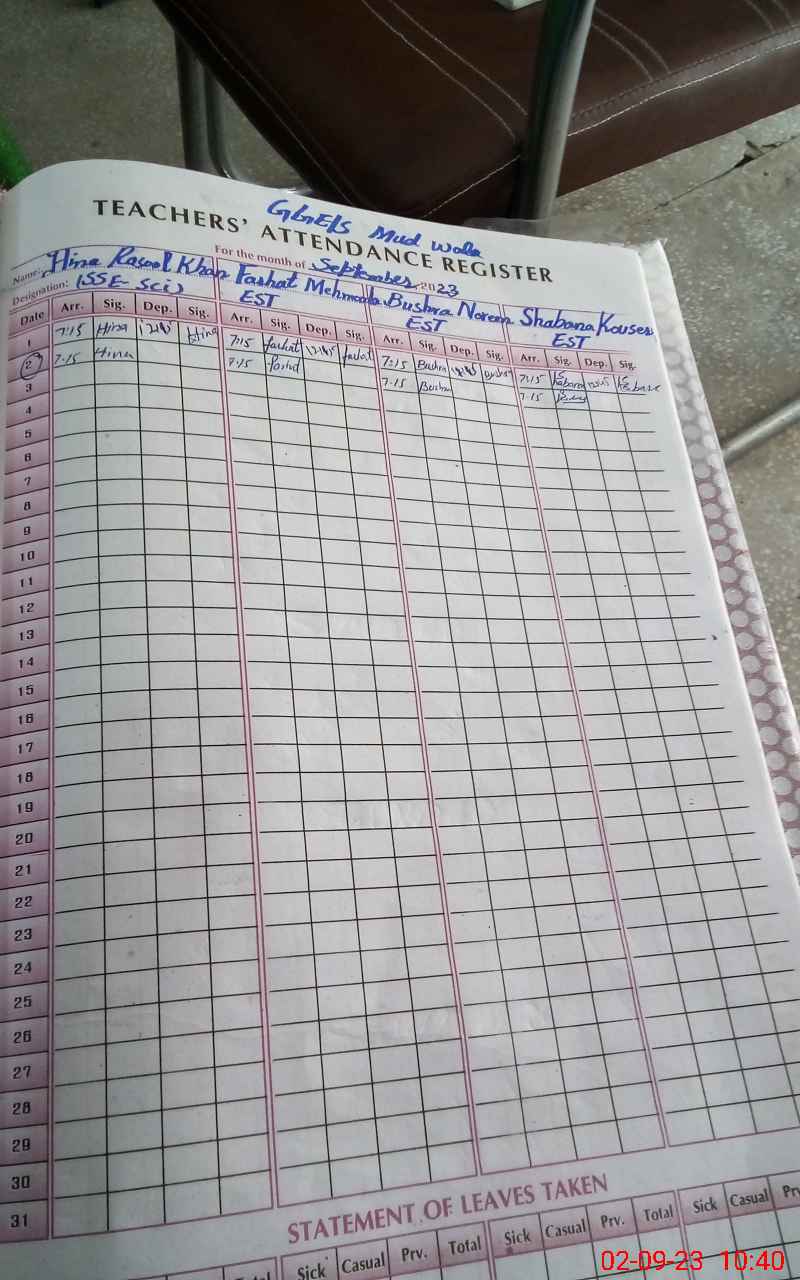 GGE/S Mud wala
TEACHERS' ATTENDANCE REGISTER
For the month of September 2023
Name: Hina Rasool Khan Farhat Mehmooda Bushra Noreen Shabana Kouser
Designation: (SSE-Sci) EST EST EST
Date Arr. Sig. Dep. Sig. Arr. Sig. Dep. Sig. Arr. Sig. Dep. Sig. Arr. Sig. Dep. Sig.
1 7:15 Hina 12:45 Hina 7:15 farhat 12:45 farhat 7:15 Bushra 12:45 7:15 Shabana 12:45 Shabana
2 7:15 Hina 7:15 farhat 7:15 Bushra 7:15
3
4
5
6
7
8
9
10
11
12
13
14
15
16
17
18
19
20
21
22
23
24
25
26
27
28
29
30
31
STATEMENT OF LEAVES TAKEN
Total Sick Casual Prv. Total Sick Casual Prv. Total Sick Casual Prv
02-09-23 10:40